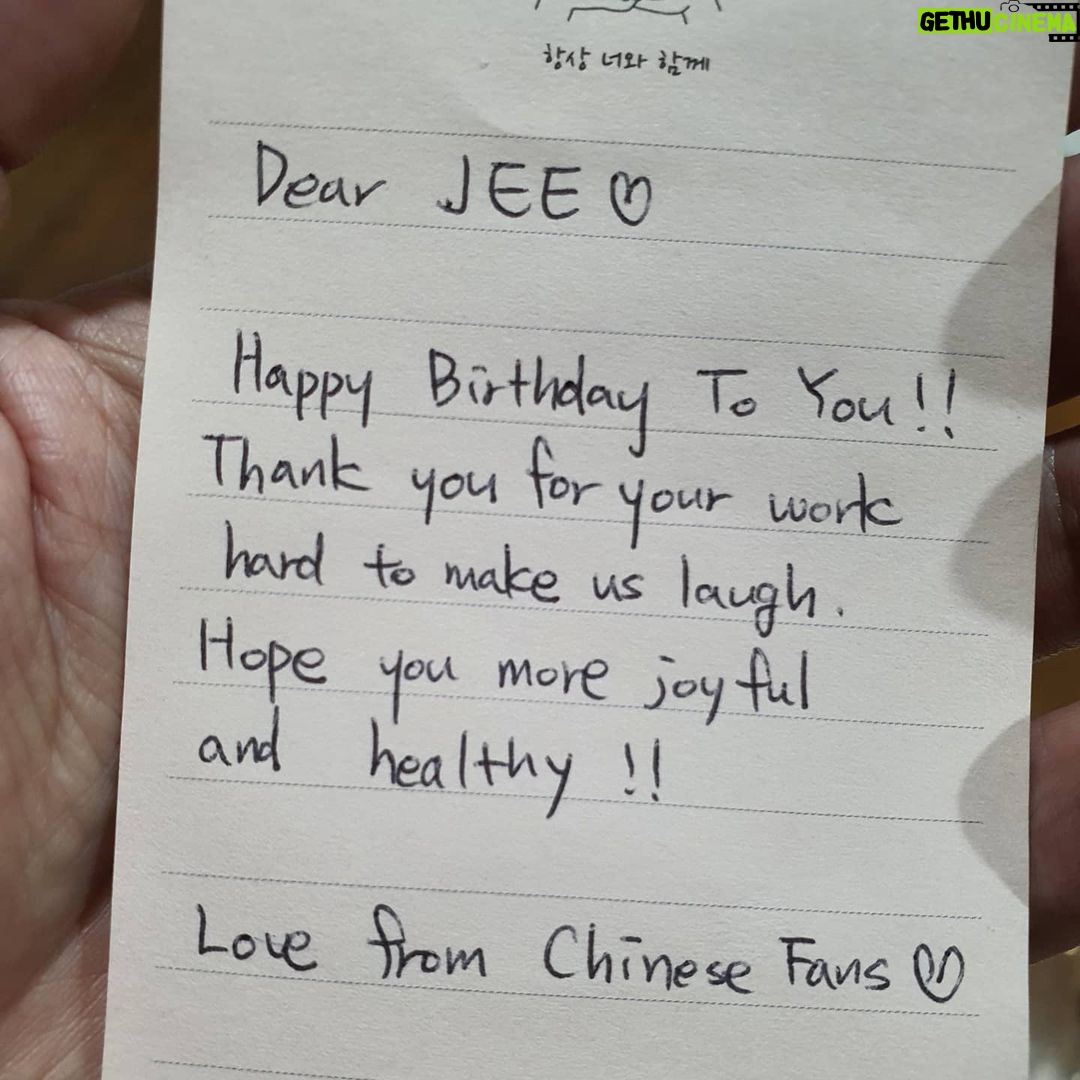 GETHUCINEMA
항상 너와 함께
Dear JEE ♡
Happy Birthday To You!!
Thank you for your work
hard to make us laugh.
Hope you more joyful
and healthy !!
Love from Chinese Fans ♡